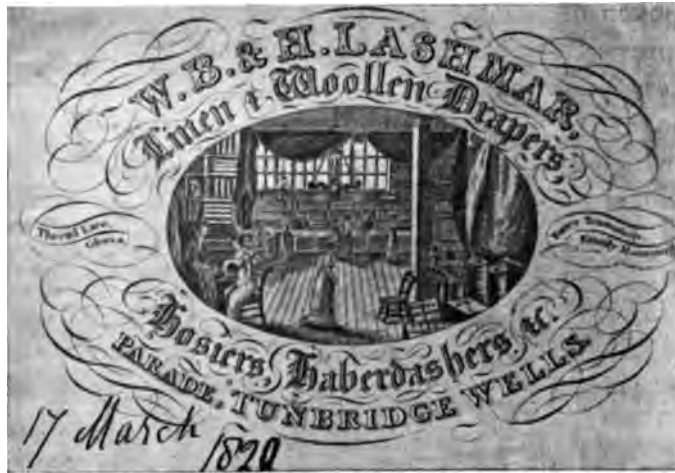 W. B. & H. LASHMAR,
Linen & Woollen Drapers,
Thread Lace,
Gloves,
Hosiers, Haberdashers, &c.
PARADE, TUNBRIDGE WELLS.
17 March
1820